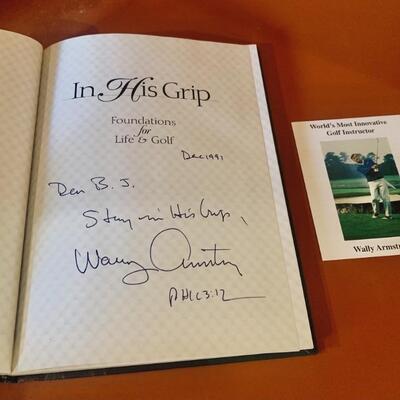 In His Grip
Foundations
for
Life & Golf
Dec
Dear B. J.
Stay in His Grip,
Wally Armstrong
Phil 3:12
World's Most Innovative
Golf Instructor
Wally Armstr